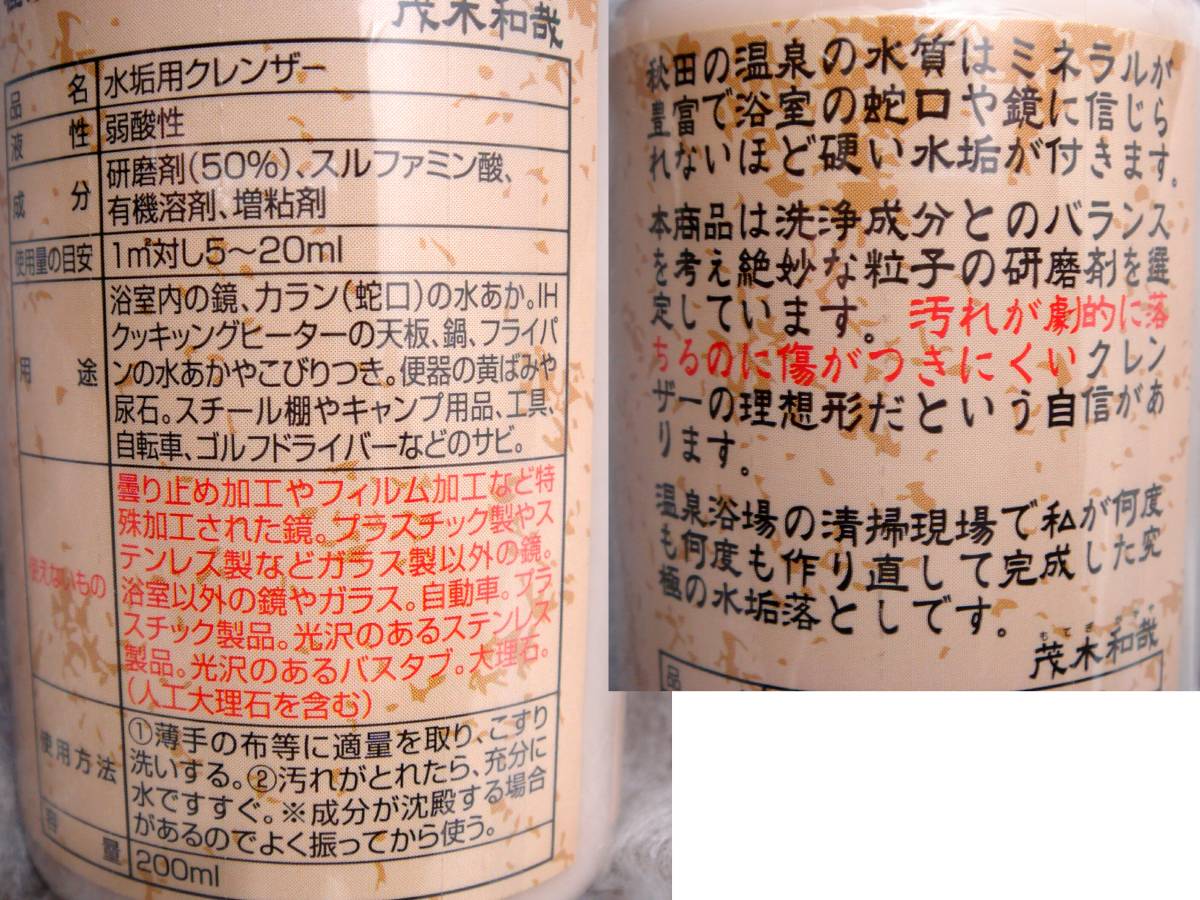 茂木和哉
品名 水垢用クレンザー
液性 弱酸性
成分 研磨剤(50%)、スルファミン酸、
有機溶剤、増粘剤
使用量の目安 1㎡対し5〜20ml
用途 浴室内の鏡、カラン(蛇口)の水あか。IH
クッキングヒーターの天板、鍋、フライパ
ンの水あかやこびりつき。便器の黄ばみや
尿石。スチール棚やキャンプ用品、工具、
自転車、ゴルフドライバーなどのサビ。
使えないもの 曇り止め加工やフィルム加工など特
殊加工された鏡。プラスチック製やス
テンレス製などガラス製以外の鏡。
浴室以外の鏡やガラス。自動車。プラ
スチック製品。光沢のあるステンレス
製品。光沢のあるバスタブ。大理石。
(人工大理石を含む)
使用方法 ①薄手の布等に適量を取り、こすり
洗いする。②汚れがとれたら、充分に
水ですすぐ。※成分が沈殿する場合
があるのでよく振ってから使う。
容量 200ml
秋田の温泉の水質はミネラルが
豊富で浴室の蛇口や鏡に信じら
れないほど硬い水垢が付きます。
本商品は洗浄成分とのバランス
を考え絶妙な粒子の研磨剤を選
定しています。汚れが劇的に落
ちるのに傷がつきにくいクレン
ザーの理想形だという自信があ
ります。
温泉浴場の清掃現場で私が何度
も何度も作り直して完成した究
極の水垢落としです。
茂木和哉
品